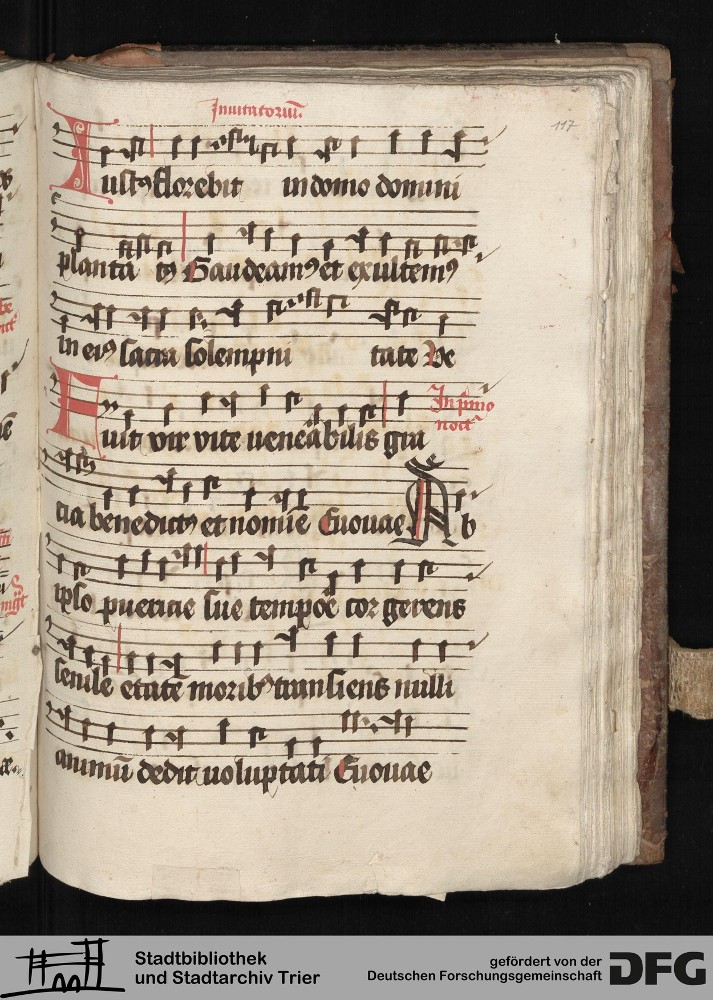 Inuitatoriū.
117
Iustꝰ florebit in domo domini
planta tꝰ Gaudeamꝰ et exultemꝰ
in eiꝰ sacra solempni tate Ve
In p̄mo
noct̄
Fuit vir vite uenerabilis gra
cia benedictꝰ et nomīe Euouae Ab
ipso puericie sue tempoꝛe cor gerens
senile etatē moribꝰ transiens nulli
animū dedit uoluptati Euouae
Stadtbibliothek
und Stadtarchiv Trier
gefördert von der
Deutschen Forschungsgemeinschaft
DFG